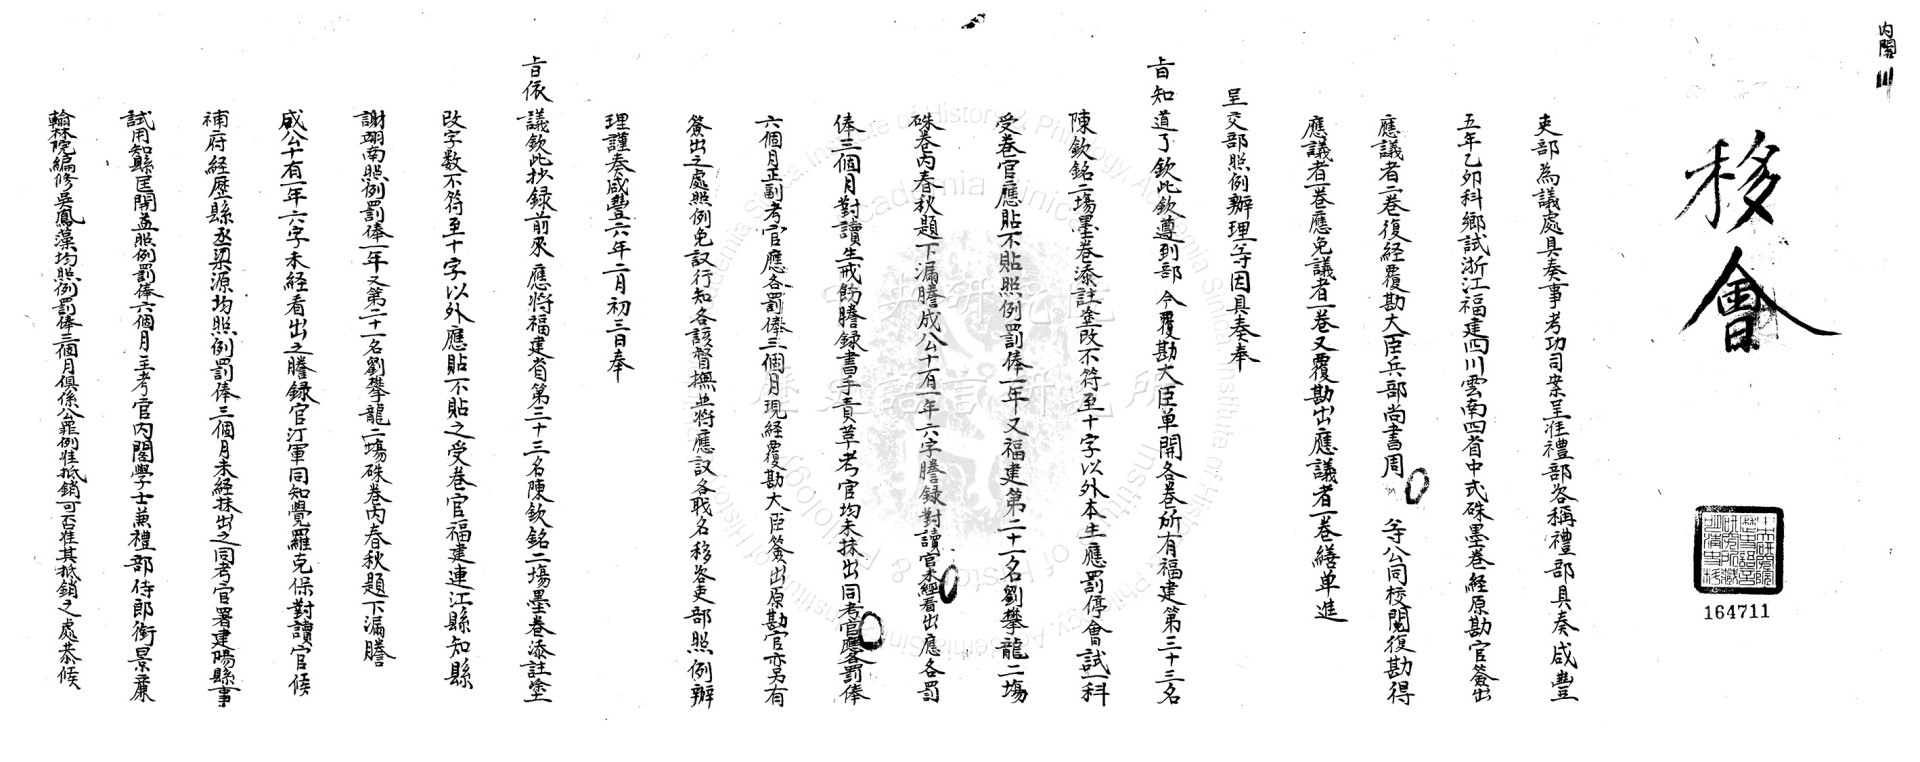 內閣
移會
吏部為議處具奏事考功司案呈准禮部咨稱禮部具奏咸豐
五年乙卯科鄉試浙江福建四川雲南四省中式硃墨卷經原勘官簽出
應議者二卷復經覆勘大臣兵部尚書周 等公同校閱復勘得
應議者一卷應免議者一卷又覆勘出應議者一卷繕单進
呈交部照例辦理等因具奏奉
旨知道了欽此欽遵到部今覆勘大臣单開各卷所有福建第三十三名
陳欽銘二塲墨卷添註塗改不符至十字以外本生應罰停會試一科
受卷官應貼不貼照例罰俸一年又福建第二十一名劉攀龍二塲
硃卷内春秋題下漏謄成公十有一年六字謄録對讀官未經看出應各罰
俸三個月對讀生戒飭謄録書手責革考官均未抹出同考官應各罰俸
六個月正副考官應各罰俸三個月現經覆勘大臣簽出原勘官亦另有
簽出之處照例免議行知各該督撫並將應議各職名移咨吏部照例辦
理謹奏咸豐六年二月初三日奉
旨依議欽此抄録前來應將福建省第三十三名陳欽銘二塲墨卷添註塗
改字数不符至十字以外應貼不貼之受卷官福建連江縣知縣
謝翊南照例罰俸一年又第二十一名劉攀龍二塲硃卷内春秋題下漏謄
成公十有一年六字未經看出之謄録官汀軍同知覺羅克保對讀官候
補府經歷縣丞梁源均照例罰俸三個月未經抹出之同考官署建陽縣事
試用知縣匡開益照例罰俸六個月主考官内閣學士兼禮部侍郎銜景廉
翰林院編修吳鳳藻均照例罰俸三個月俱係公罪例准抵銷可否准其抵銷之處恭候
中央研究院歷史語言研究所
164711